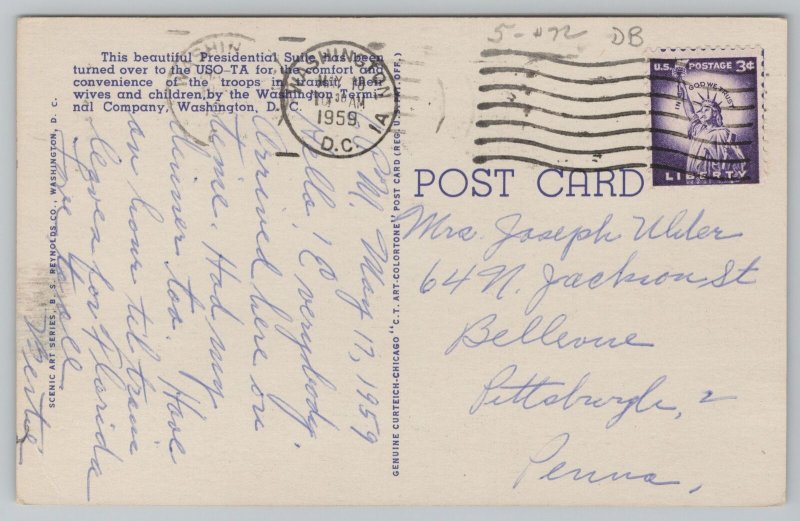 5-#72 DB
This beautiful Presidential Suite has been
turned over to the USO-TA for the comfort and
convenience of the troops in transit, their
wives and children, by the Washington Termi-
nal Company, Washington, D. C.
WASHINGTON
1959
D.C.
U.S. POSTAGE 3¢
IN GOD WE TRUST
LIBERTY
POST CARD
SCENIC ART SERIES, B. S. REYNOLDS CO., WASHINGTON, D. C.
GENUINE CURTEICH-CHICAGO "C.T. ART-COLORTONE" POST CARD (REG. U.S. PAT. OFF.)
May 17, 1959
Hello! Everybody.
Arrived here on
time. Had my
dinner too. Have
an hour til train
leaves for Florida
Love to all
Bertie
Mrs. Joseph
64 N. Jackson St
Bellevue
Pittsburgh, 2
Penna,